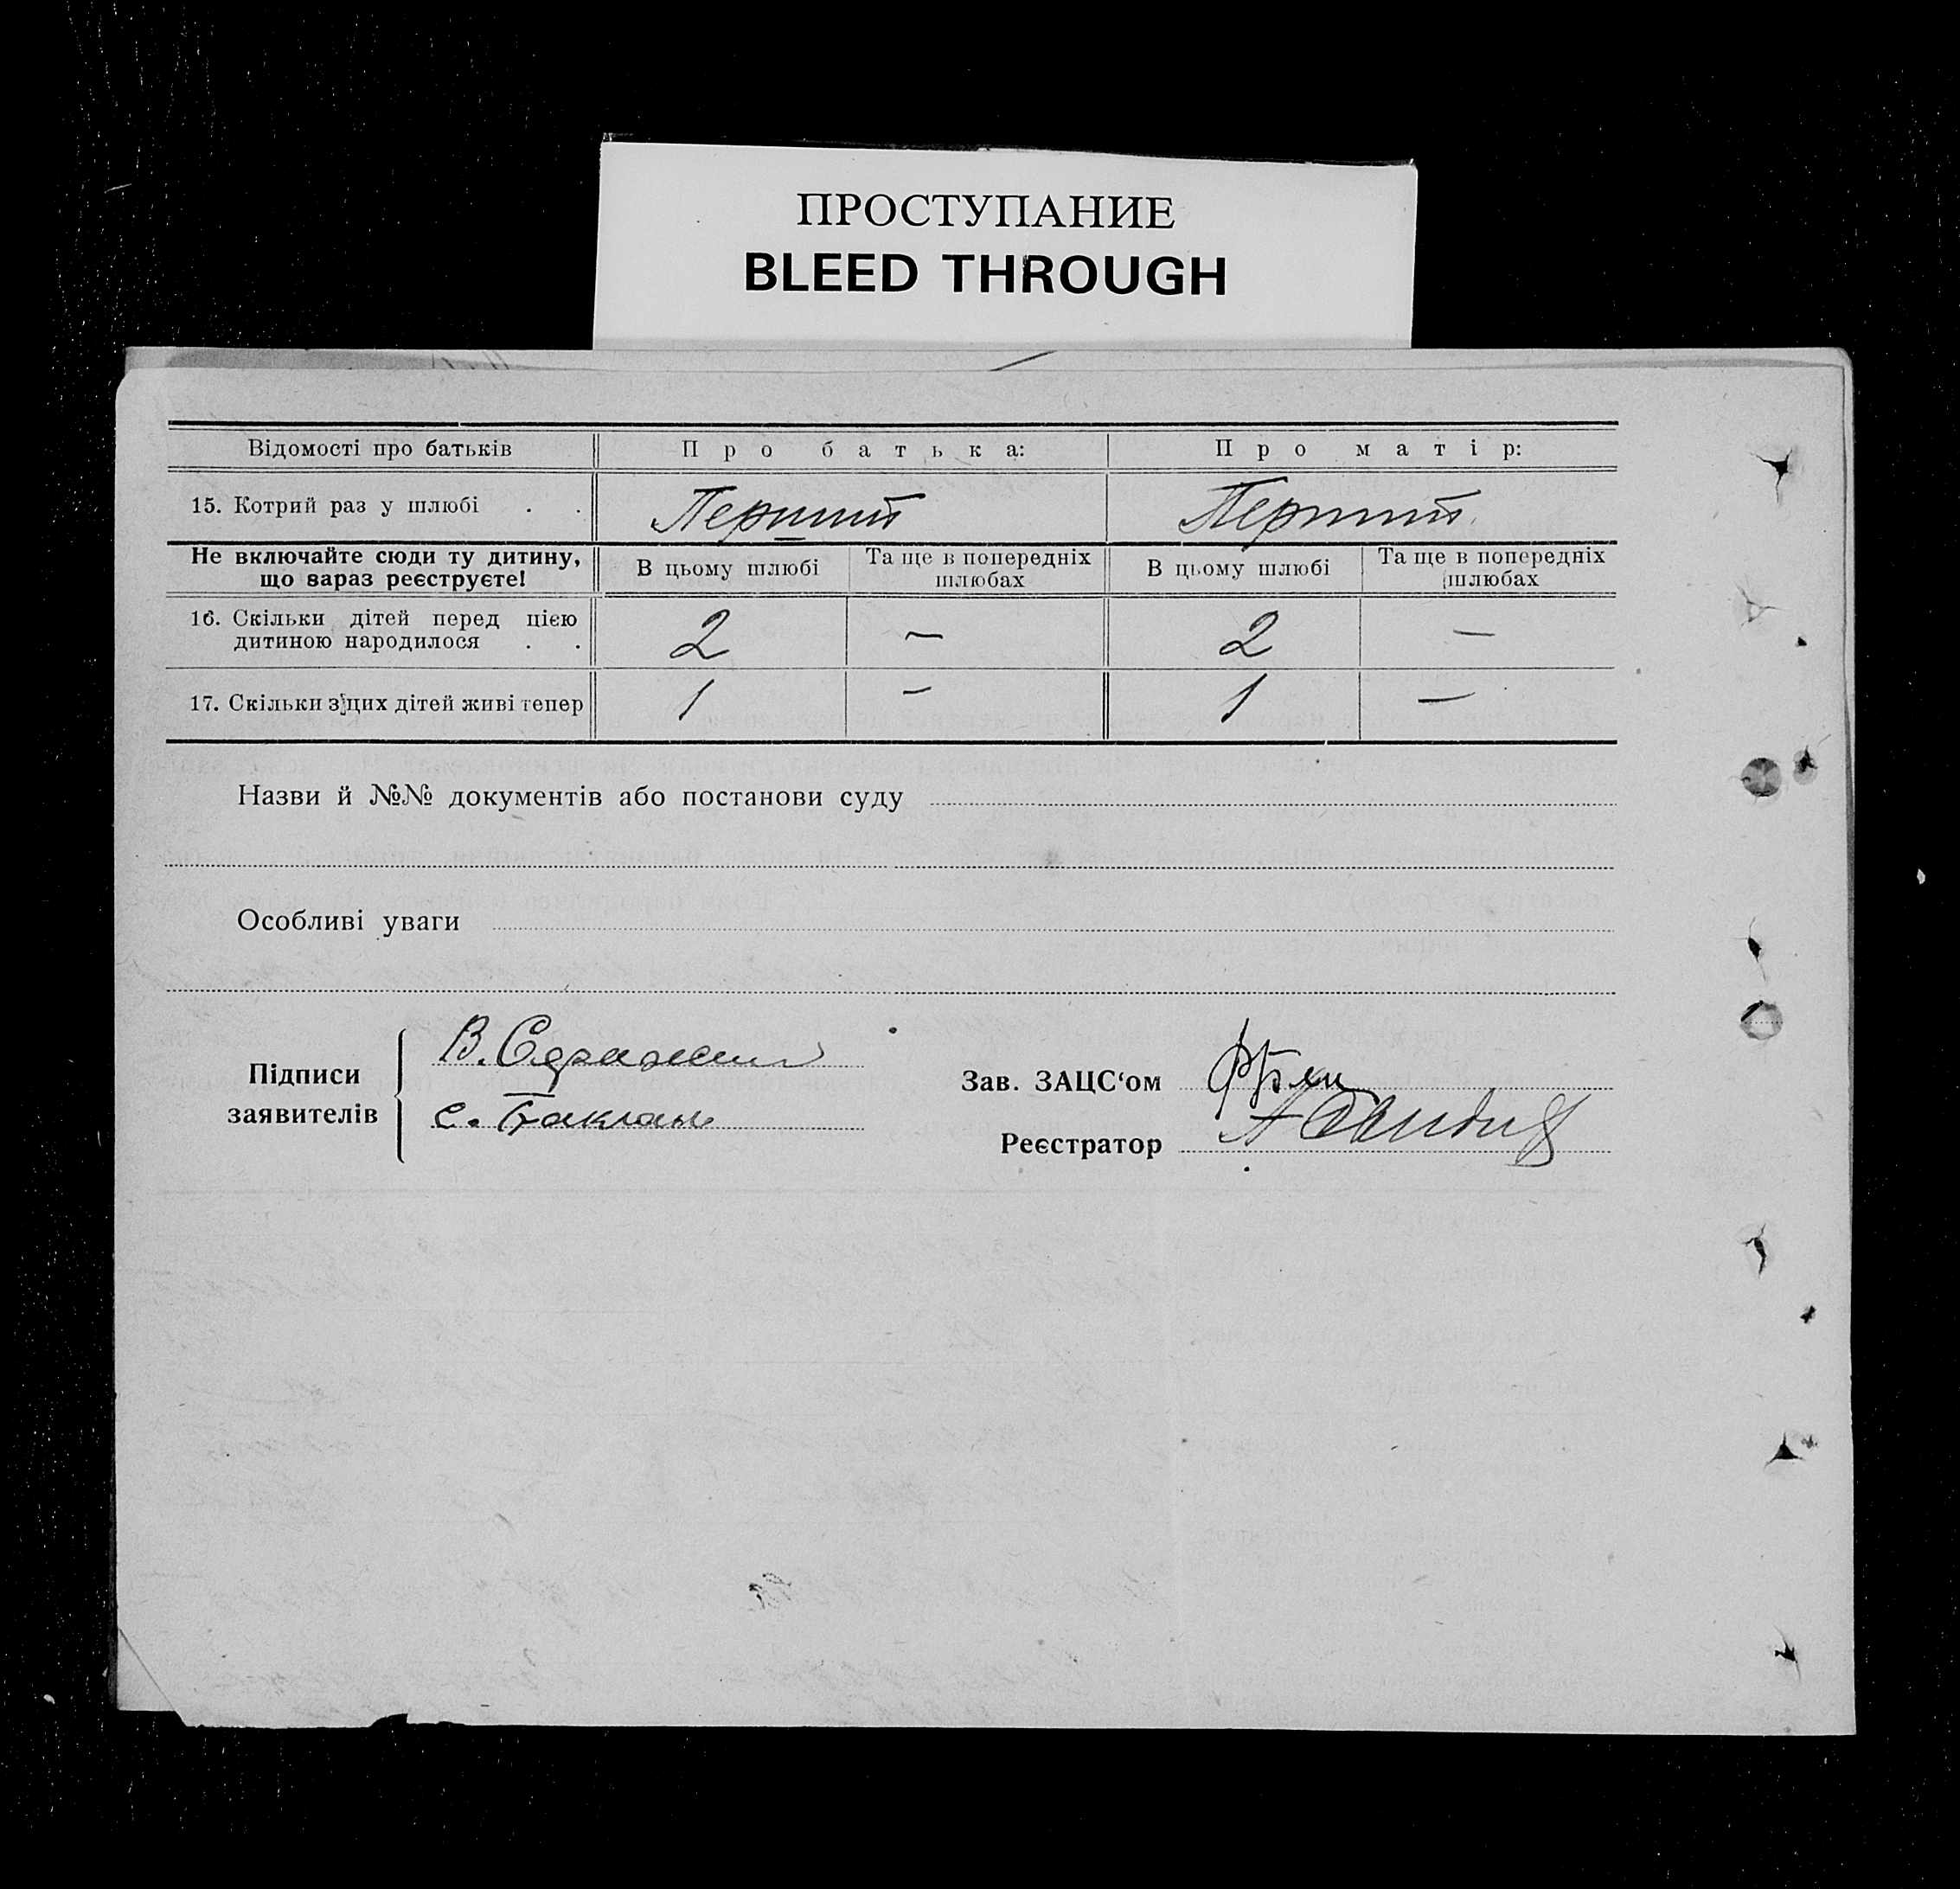 ПРОСТУПАНИЕ
BLEED THROUGH
Відомості про батьків Про батька: Про матір:
15. Котрий раз у шлюбі . . Перший Перший
Не включайте сюди ту дитину, що вараз реєструєте! В цьому шлюбі Та ще в попередніх шлюбах В цьому шлюбі Та ще в попередніх шлюбах
16. Скільки дітей перед цією дитиною народилося . . 2 — 2 —
17. Скільки з цих дітей живі тепер 1 — 1 —
Назви й №№ документів або постанови суду
Особливі уваги
Підписи заявителів
В.
С. Баклан
Зав. ЗАЦС‘ом
Реєстратор